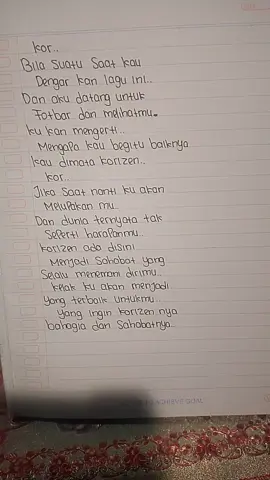 kor..
Bila suatu saat kau
Dengar kan lagu ini..
Dan aku datang untuk
Fotbar dan melihatmu.
ku kan mengerti..
Mengapa kau begitu baiknya
kau dimata korizen..
kor..
Jika saat nanti ku akan
Melupakan mu..
Dan dunia ternyata tak
Seperti harapanmu..
korizen ada disini
Menjadi sahabat yang
Selalu menemani dirimu
kelak ku akan menjadi
yang terbaik untukmu
yang ingin korizen nya
bahagia dan sahabatnya